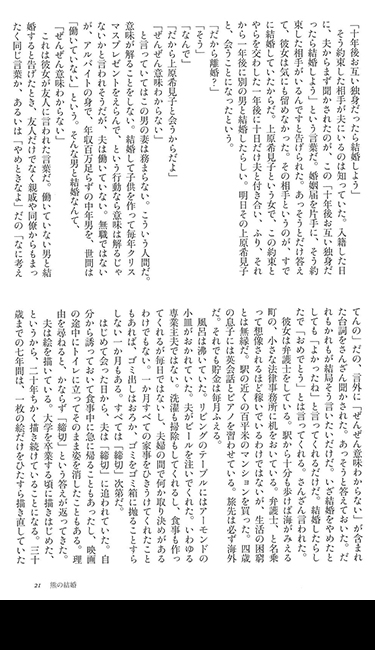 「十年後お互い独身だったら結婚しよう」
そう約束した相手が夫にいるのは知っていた。入籍した日
に、夫からまず聞かされたのが、この「十年後お互い独身だ
ったら結婚しよう」という言葉だ。婚姻届を片手に、そう約
束した相手がいるんですと告げられた。あっそうとだけ答え
て、彼女は気にも留めなかった。その相手というのが、すで
に結婚していたからだ。上原希見子という女で、この約束と
やらを交わした一年後に十日だけ夫と付き合い、ふり、それ
から一年後に別の男と結婚したらしい。明日その上原希見子
と、会うことになったという。
「だから離婚？」
「そう」
「なんで」
「だから上原希見子と会うからだよ」
「ぜんぜん意味わからない」
と言っていてはこの男の妻は務まらない。こういう人間だ。
意味が解ることをしない。結婚して子供を作って毎年クリス
マスプレゼントをえらんで、という行動なら意味は解るじゃ
ないかと言われそうだが、夫は働いていない。無職ではない
が、アルバイトの身で、年収百万足らずの中年男を、世間は
「働いていない」という。そんな男と結婚なんて、
「ぜんぜん意味わからない」
これは彼女が友人に言われた言葉だ。働いていない男と結
婚すると告げたとき、友人だけでなく親戚や同僚からもまっ
たく同じ言葉か、あるいは「やめときなよ」だの「なに考え
てんの」だの、言外に「ぜんぜん意味わからない」が含まれ
た台詞をさんざん聞かされた。あっそうと答えておいた。だ
れもかれもが結局そう言いたいだけだ。いざ結婚をやめたと
しても「よかったね」と言ってくれるだけだ。結婚したらし
たで「おめでとう」とは言ってくれる。さんざん言われた。
彼女は弁護士をしている。駅から十分も歩けば海がみえる
町の、小さな法律事務所に机をおいている。弁護士、と名乗
って想像されるほど稼いでいるわけではないが、生活の困窮
とは無縁だ。駅の近くの百平米のマンションを買った。四歳
の息子には英会話とピアノを習わせている。旅先は必ず海外
だ。それでも貯金は毎月ふえる。
風呂は沸いていた。リビングのテーブルにはアーモンドの
小皿がおかれていた。夫がビールを注いでくれた。いわゆる
専業主夫ではない。洗濯も掃除もしてくれるし、食事も作っ
てくれるが毎日ではないし、夫婦の間で何か取り決めがある
わけでもない。一か月すべての家事をひきうけてくれたこと
もあれば、ゴミ出しはおろか、ゴミをゴミ箱に拋ることすら
しない一か月もある。すべては「締切」次第だ。
はじめて会った日から、夫は「締切」に追われていた。自
分から誘っておいて食事中に急に帰ることもあったし、映画
の途中にトイレに立ってそのまま姿を消したこともある。理
由を尋ねると、かならず「締切」という答えが返ってきた。
夫は絵を描いている。大学を卒業する頃に描きはじめた、
というから、二十年ちかく描き続けていることになる。三十
歳までの七年間は、一枚の絵だけをひたすら描き直していた
21 熊の結婚